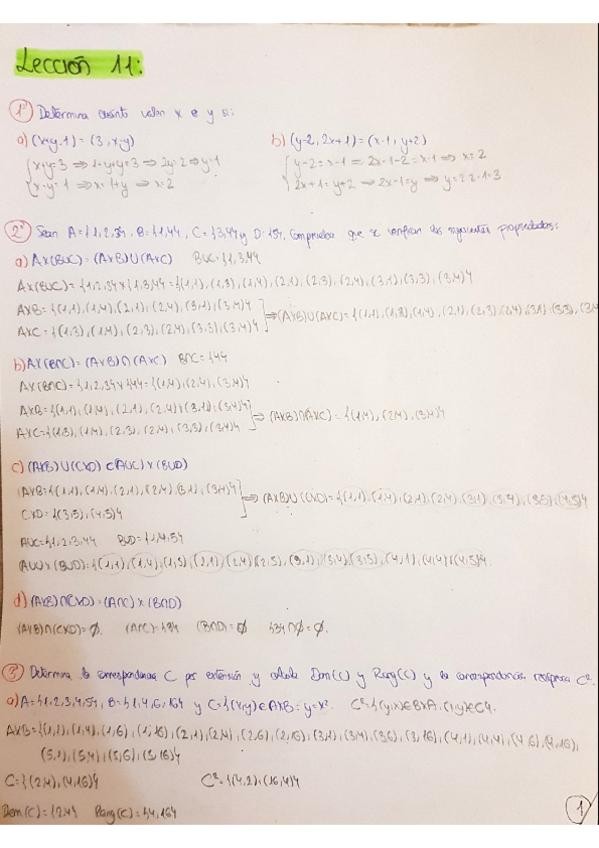 Lección 11:
1º Determina cuánto valen x e y si:
a) (x+y,1) = (3, x-y)
b) (y-2, 2x+1) = (x-1, y+2)
{ x+y=3 ⇒ 1+y+y=3 ⇒ 2y=2 ⇒ y=1
{ y-2=x-1 ⇒ 2x-1-2=x-1 ⇒ x=2
{ x-y=1 ⇒ x=1+y ⇒ x=2
{ 2x+1=y+2 ⇒ 2x-1=y ⇒ y=2·2-1=3
2º Sean A={1,2,3}, B={1,4}, C={3,4} y D={5}, comprueba que se verifican las siguientes propiedades:
a) Ax(BUC)=(AxB)U(AxC) BUC={1,3,4}
Ax(BUC)={1,2,3}x{1,3,4}={(1,1),(1,3),(1,4),(2,1),(2,3),(2,4),(3,1),(3,3),(3,4)}
AxB={(1,1),(1,4),(2,1),(2,4),(3,1),(3,4)}
⇒(AxB)U(AxC)={(1,1),(1,3),(1,4),(2,1),(2,3),(2,4),(3,1),(3,3),(3,4
AxC={(1,3),(1,4),(2,3),(2,4),(3,3),(3,4)}
b) Ax(B∩C)=(AxB)∩(AxC) B∩C={4}
Ax(B∩C)={1,2,3}x{4}={(1,4),(2,4),(3,4)}
AxB={(1,1),(1,4),(2,1),(2,4),(3,1),(3,4)}
⇒ (AxB)∩(AxC)={(1,4),(2,4),(3,4)}
AxC={(1,3),(1,4),(2,3),(2,4),(3,3),(3,4)}
c) (AxB)U(CxD)⊂(AUC)x(BUD)
AxB={(1,1),(1,4),(2,1),(2,4),(3,1),(3,4)}
⇒ (AxB)U(CxD)={(1,1),(1,4),(2,1),(2,4),(3,1),(3,4),(3,5),(4,5)}
CxD={(3,5),(4,5)}
AUC={1,2,3,4} BUD={1,4,5}
(AUC)x(BUD)={(1,1),(1,4),(1,5),(2,1),(2,4),(2,5),(3,1),(3,4),(3,5),(4,1),(4,4),(4,5)}
d) (AxB)∩(CxD)=(A∩C)x(B∩D)
(AxB)∩(CxD)=∅. (A∩C)={3} (B∩D)=∅ {3}∩∅=∅.
3º Determina la correspondencia C por extensión y calcula Dom(C) y Rang(C) y la correspondencia recíproca
a) A={1,2,3,4,5}, B={1,4,6,16} y C={(x,y)∈AxB:y=x². (y,x)∈BxA:(x,y)∈C}.
AxB={(1,1),(1,4),(1,6),(1,16),(2,1),(2,4),(2,6),(2,16),(3,1),(3,4),(3,6),(3,16),(4,1),(4,4),(4,6),(4,16),
(5,1),(5,4),(5,6),(5,16)}
C={(2,4),(4,16)}
{(4,2),(16,4)}
Dom(C)={2,4} Rang(C)={4,16}
1